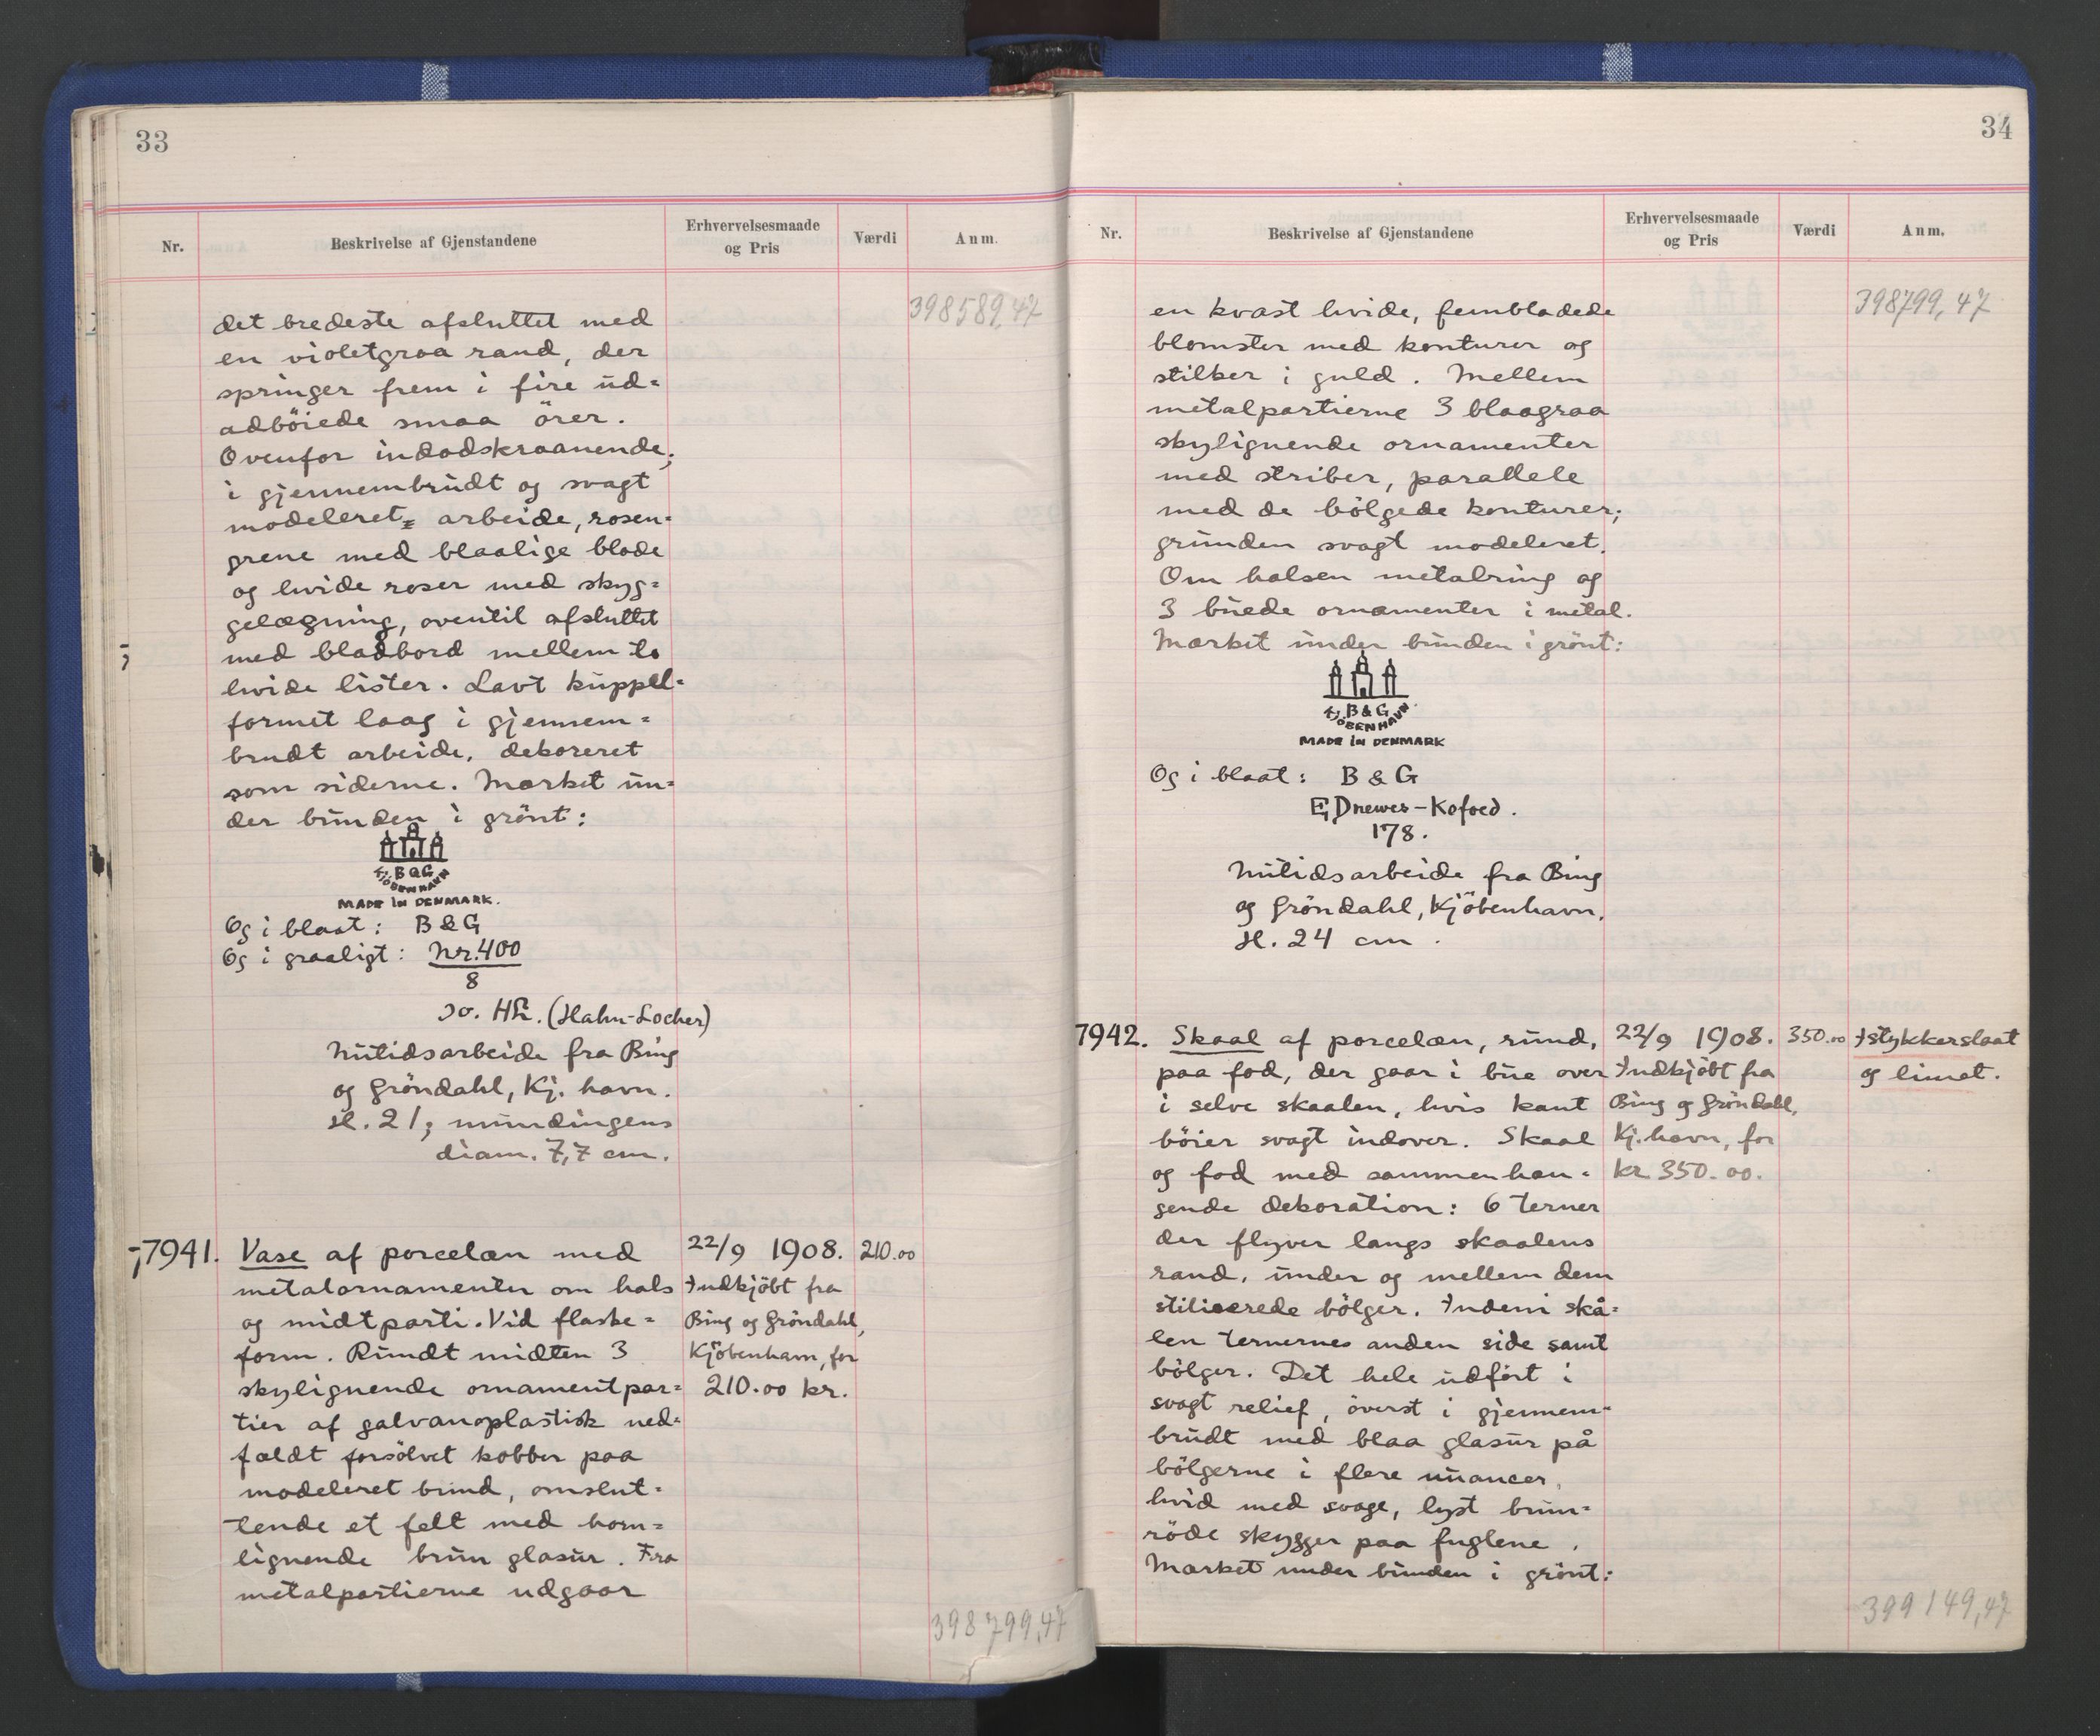 33
Nr.
Beskrivelse af Gjenstandene
Erhvervelsesmaade
og Pris
Værdi
Anm.
398589,47
det bredeste afsluttet med
en violetgraa rand, der
springer frem i fire ud=
adböiede smaa örer.
Ovenfor indadskraanende,
i gjennembrudt og svagt
modeleret= arbeide, rosen=
grene med blaalige blade
og hvide roser med skyg=
gelægning, oventil afsluttet
med bladbord mellem to
hvide lister. Lavt kuppel=
formet laag i gjennem=
brudt arbeide, dekoreret
som siderne. Mærket un=
der bunden i grönt:
B&G
KJÖBENHAVN
MADE IN DENMARK.
Og i blaat: B&G
Og i graaligt: Nr. 400
8
Jo. HL. (Hahn-Locher)
Nutidsarbeide fra Bing
og Gröndahl, Kj. havn.
H. 21; mundingens
diam. 7,7 cm.
÷7941. Vase af porcelæn med
metalornamenter om hals
og midtparti. Vid flaske=
form. Rundt midten 3
skylignende ornamentpar=
tier af galvanoplastisk ned=
fældt forsölvet kobber paa
modeleret bund, omslut=
tende et felt med horn=
lignende brun glasur. Fra
metalpartierne udgaar
22/9 1908.
Indkjöbt fra
Bing og Gröndahl,
Kjöbenhavn, for
210.00 kr.
210.00
398799,47
34
Nr.
Beskrivelse af Gjenstandene
Erhvervelsesmaade
og Pris
Værdi
Anm.
398799,47
en kvast hvide, fembladede
blomster med konturer og
stilker i guld. Mellem
metalpartierne 3 blaagraa
skylignende ornamenter
med striber, parallele
med de bölgede konturer;
grunden svagt modeleret.
Om halsen metalring og
3 buede ornamenter i metal.
Mærket under bunden i grönt:
B&G
KJÖBENHAVN
MADE IN DENMARK
Og i blaat: B&G
E, Drewes-Kofoed.
178.
Nutidsarbeide fra Bing
og Gröndahl, Kjöbenhavn.
H. 24 cm.
7942. Skaal af porcelæn, rund,
paa fod, der gaar i bue over
i selve skaalen, hvis kant
böier svagt indover. Skaal
og fod med sammenhæn=
gende dekoration: 6 terner
der flyver langs skaalens
rand, under og mellem dem
stiliserede bölger. Indeni skå=
len ternernes anden side samt
bölger. Det hele udfört i
svagt relief, överst i gjennem=
brudt med blaa glasur på
bölgerne i flere nuancer,
hvid med svage, lyst brun=
röde skygger paa fuglene.
Mærket under bunden i grönt:
22/9 1908.
Indkjöbt fra
Bing og Gröndahl,
Kj. havn, for
kr. 350.00.
350.00
Istykkerslaat
og limet.
399149,47